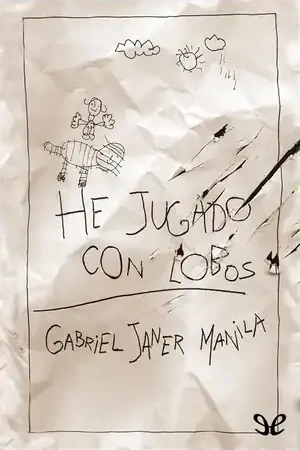 HE JUGADO
CON LOBOS
GABRIEL JANER MANILA